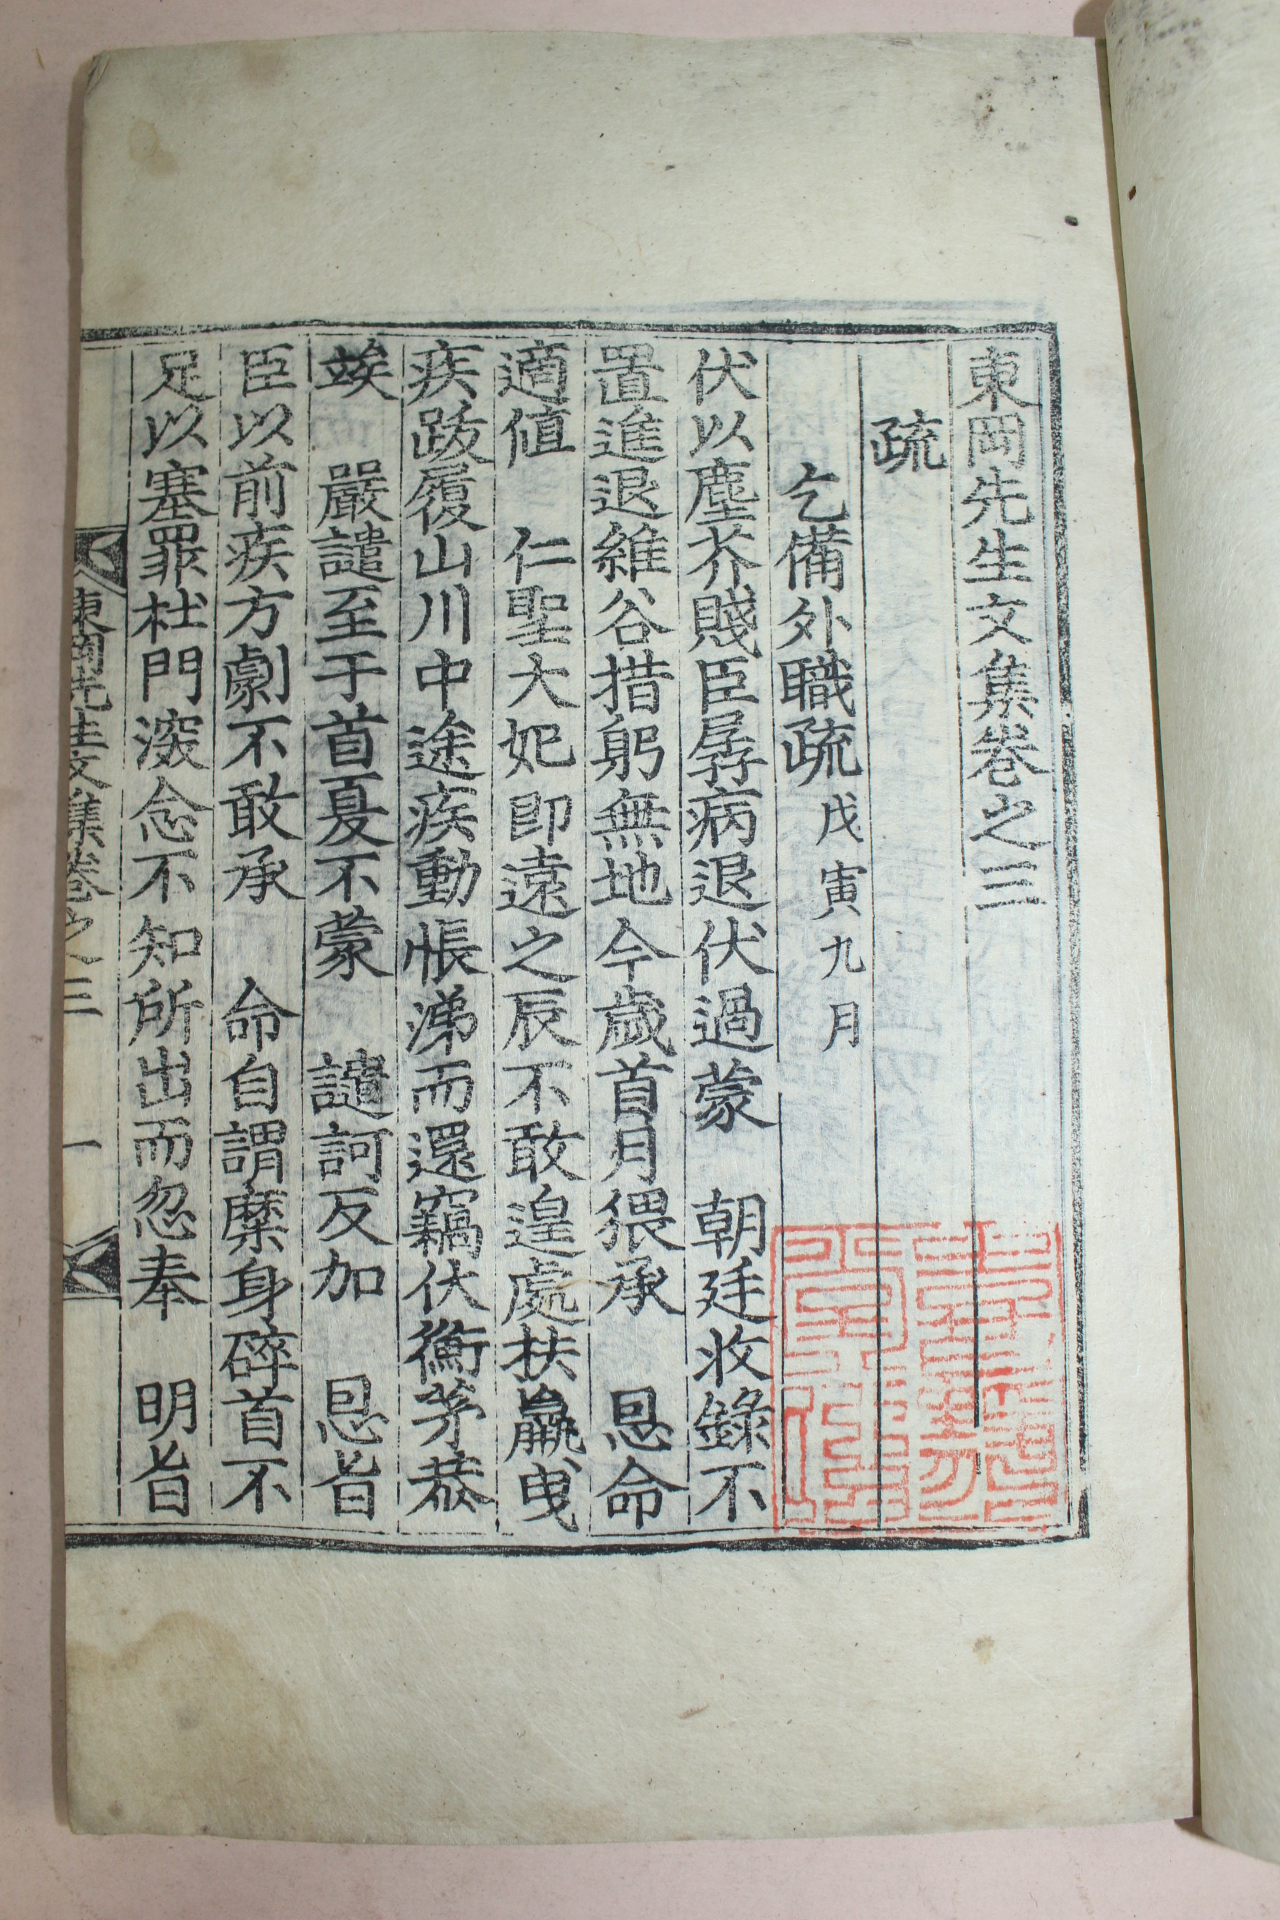 東岡先生文集卷之三
疏
乞備外職疏 戊寅九月
伏以塵芥賤臣孱病退伏過蒙 朝廷收錄不
置進退維谷措躬無地今歲首月猥承 恩命
適値 仁聖大妃卽遠之辰不敢遑處扶羸曳
疾跋履山川中途疾動悵涕而還竊伏衡茅恭
竢 嚴譴至于首夏不蒙 譴訶反加 恩旨
臣以前疾方劇不敢承 命自謂糜身碎首不
足以塞罪杜門深念不知所出而忽奉 明旨
東岡先生文集卷之三 一